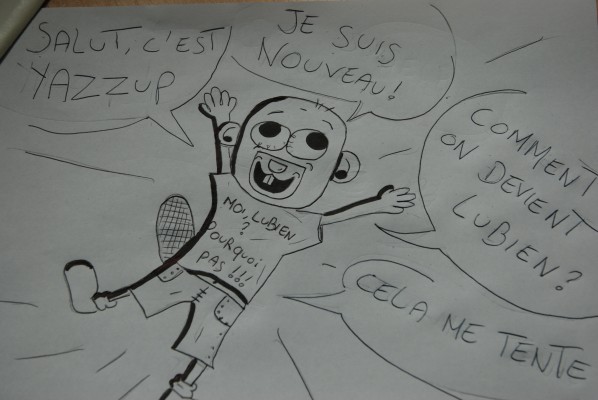 SALUT, C'EST
YAZZUP
JE SUIS
NOUVEAU!
COMMENT
ON DEVIENT
LUBIEN?
CELA ME TENTE
MOI, LUBIEN
?
POURQUOI
PAS!!!